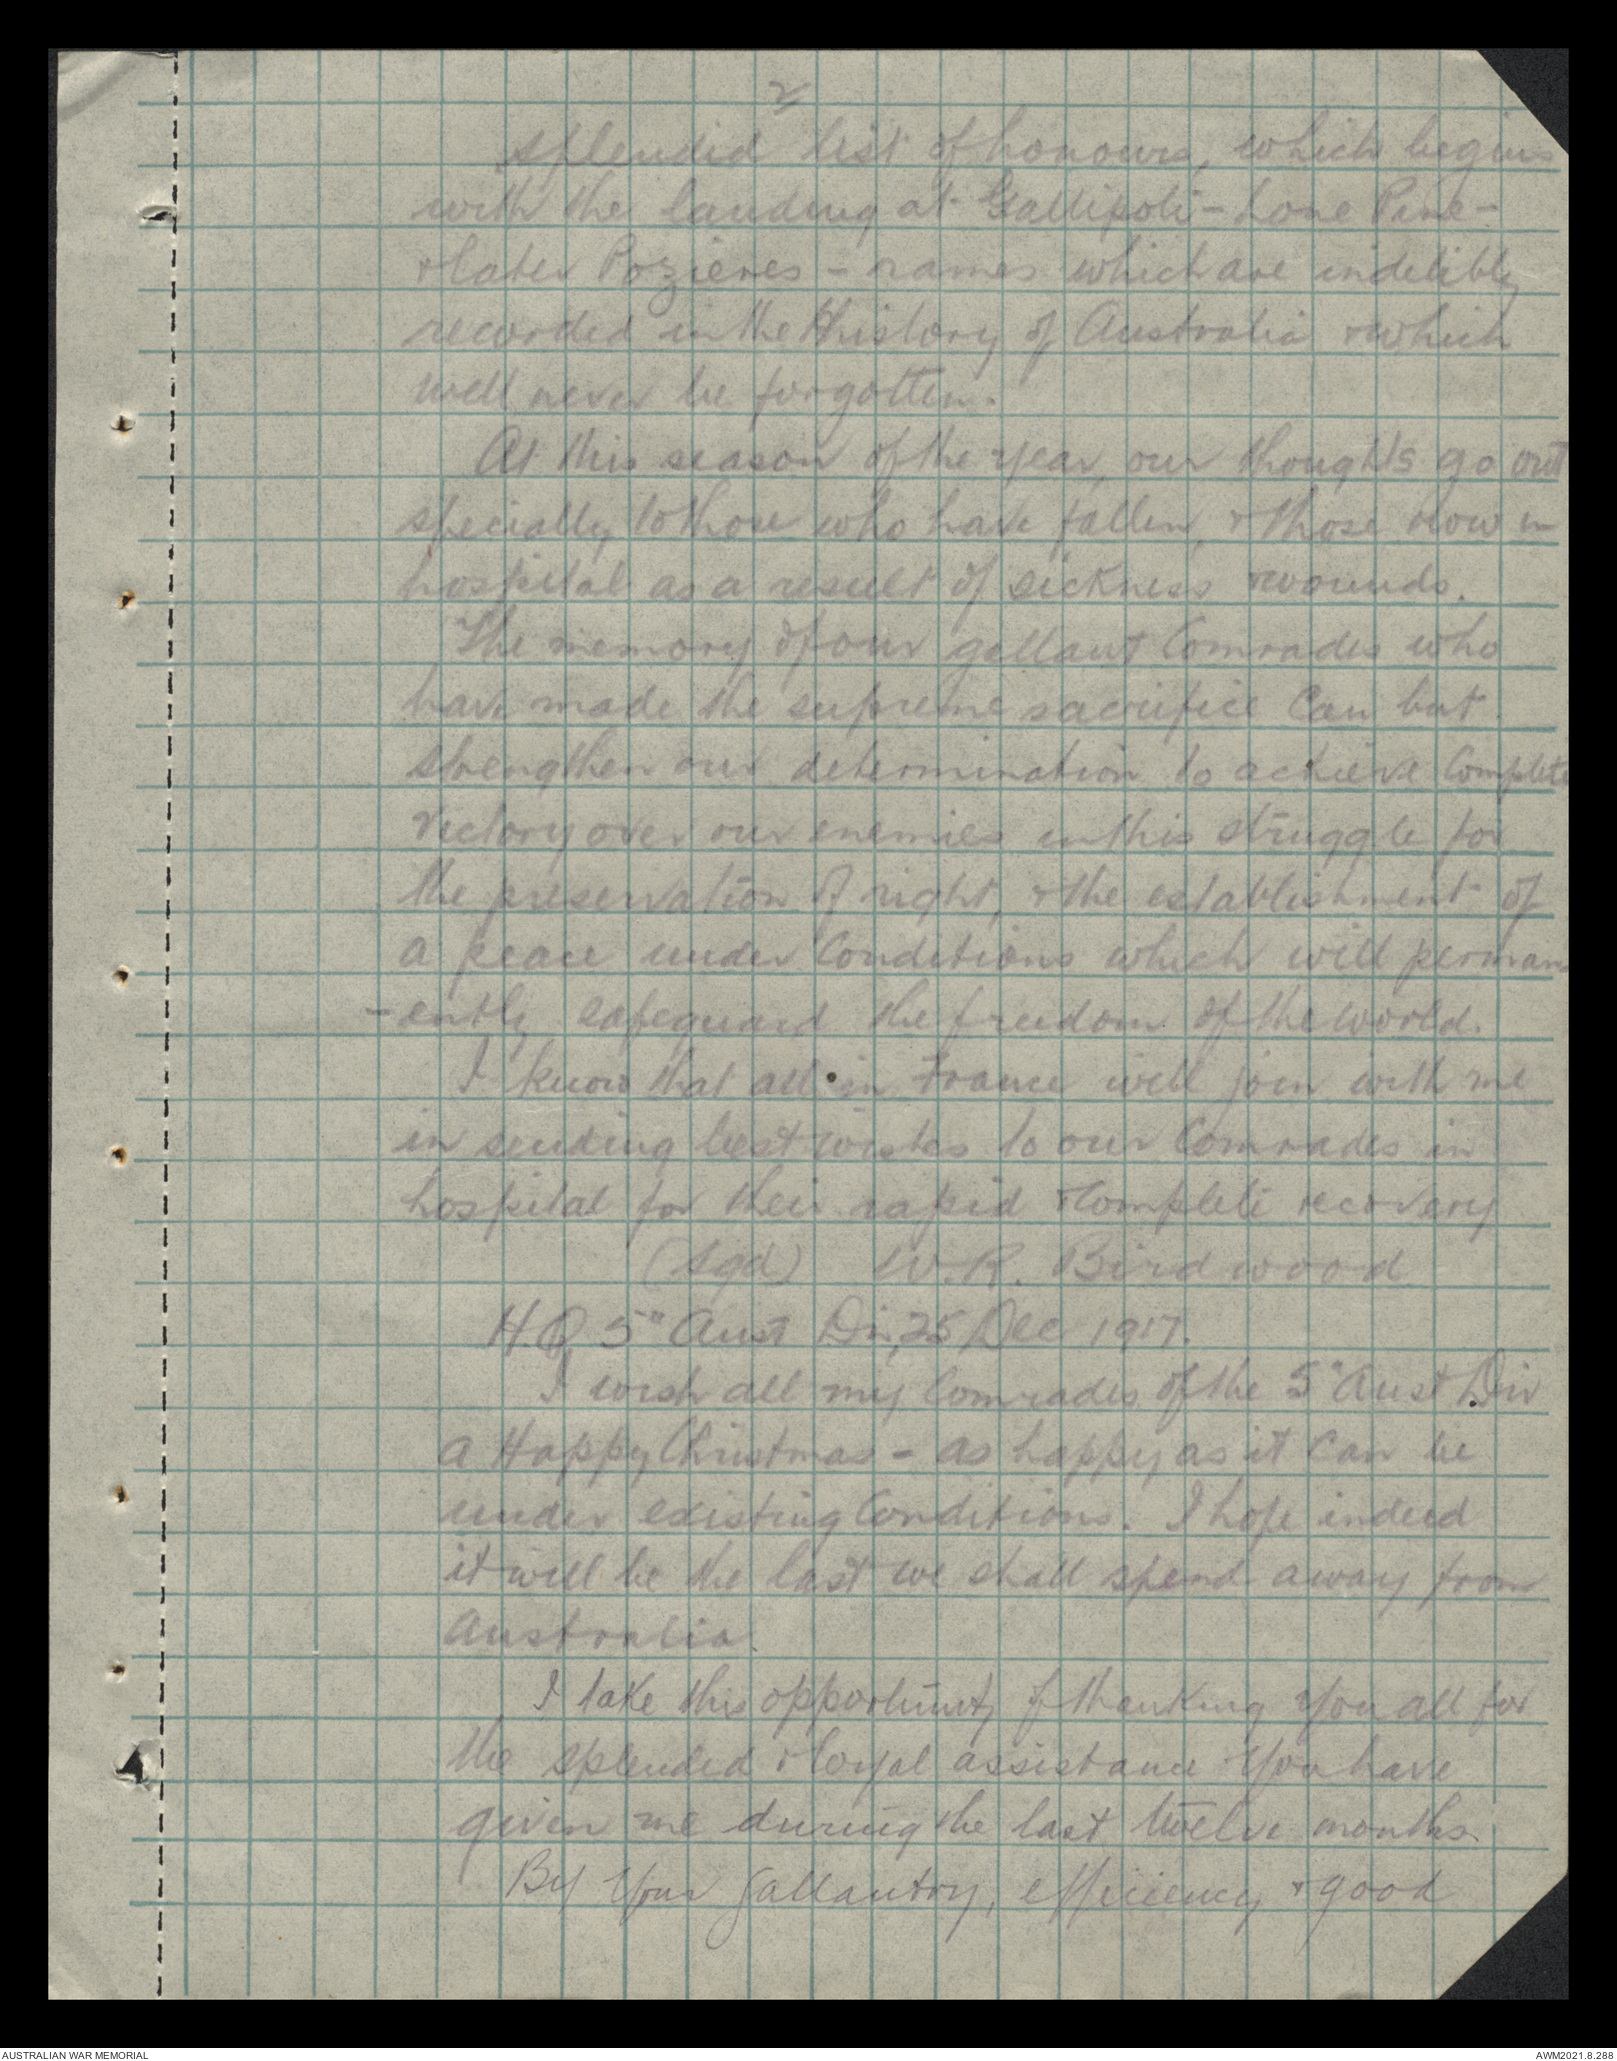 2/
splendid list of honours, which begins
with the landing at Gallipoli - Lone Pine -
& later Pozieres - names which are indelibly
recorded in the History of Australia & which
will never be forgotten.
At this season of the year, our thoughts go out
specially to those who have fallen, & those now in
hospital as a result of sickness & wounds.
The memory of our gallant Comrades who
have made the supreme sacrifice can but
strengthen our determination to achieve Complete
victory over our enemies in this struggle for
the preservation of right, & the establishment of
a peace under Conditions which will perman
-ently safeguard the freedom of the world.
I know that all in France will join with me
in sending best wishes to our Comrades in
hospital for their rapid & complete recovery
(Sgd) W.R. Birdwood
H.Q 5" Aust Div, 25 Dec 1917.
I wish all my Comrades of the 5" Aust Div
a Happy Christmas - as happy as it can be
under existing Conditions. I hope indeed
it will be the last we shall spend away from
Australia.
I take this opportunity of thanking you all for
the splendid & loyal assistance you have
given me during the last twelve months.
By your gallantry, efficiency & good
AUSTRALIAN WAR MEMORIAL
AWM2021.8.288